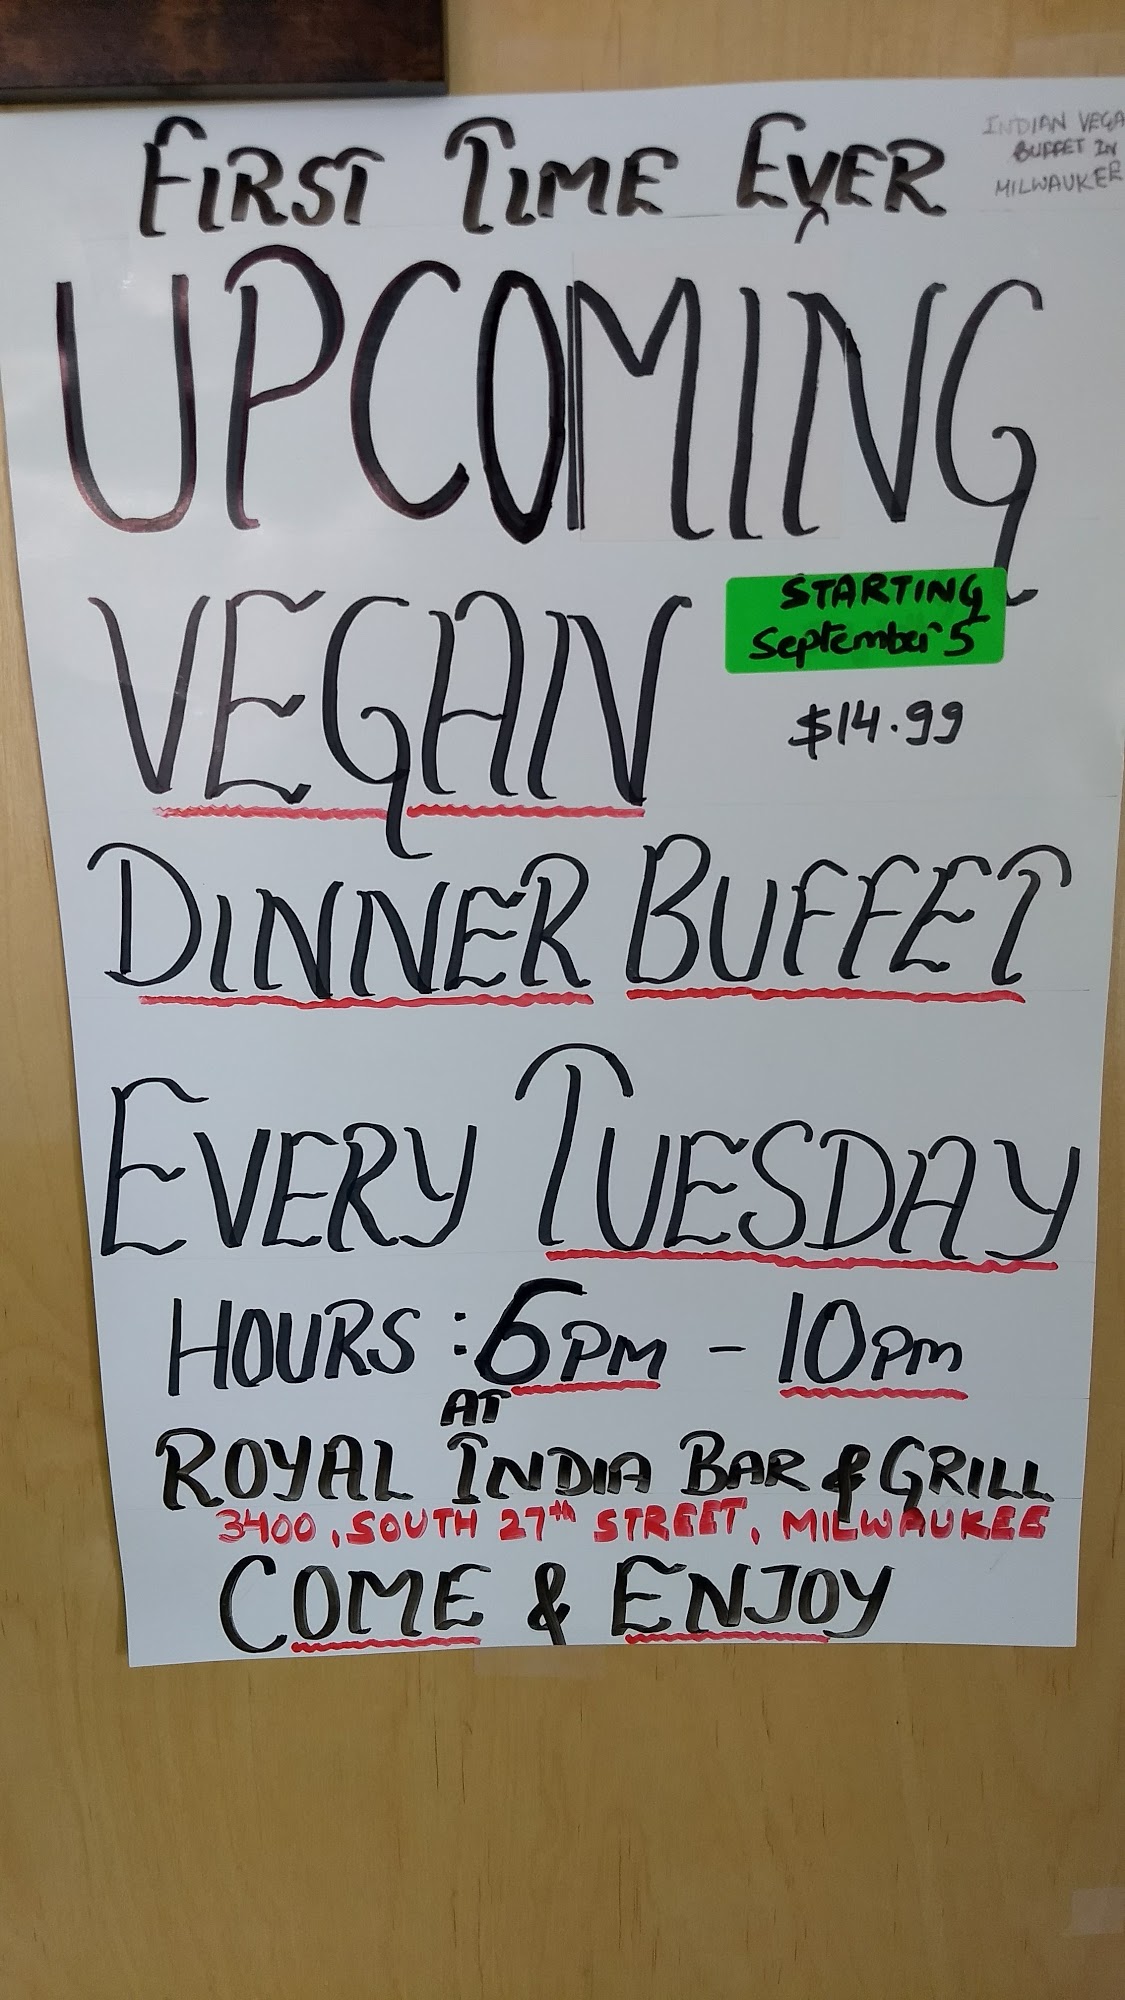 FIRST TIME EVER
INDIAN VEGA
BUFFET IN
MILWAUKEE
UPCOMING
VEGAN
STARTING
September 5
$14.99
DINNER BUFFET
EVERY TUESDAY
HOURS : 6PM - 10PM
AT
ROYAL INDIA BAR & GRILL
3400, SOUTH 27th STREET, MILWAUKEE
COME & ENJOY